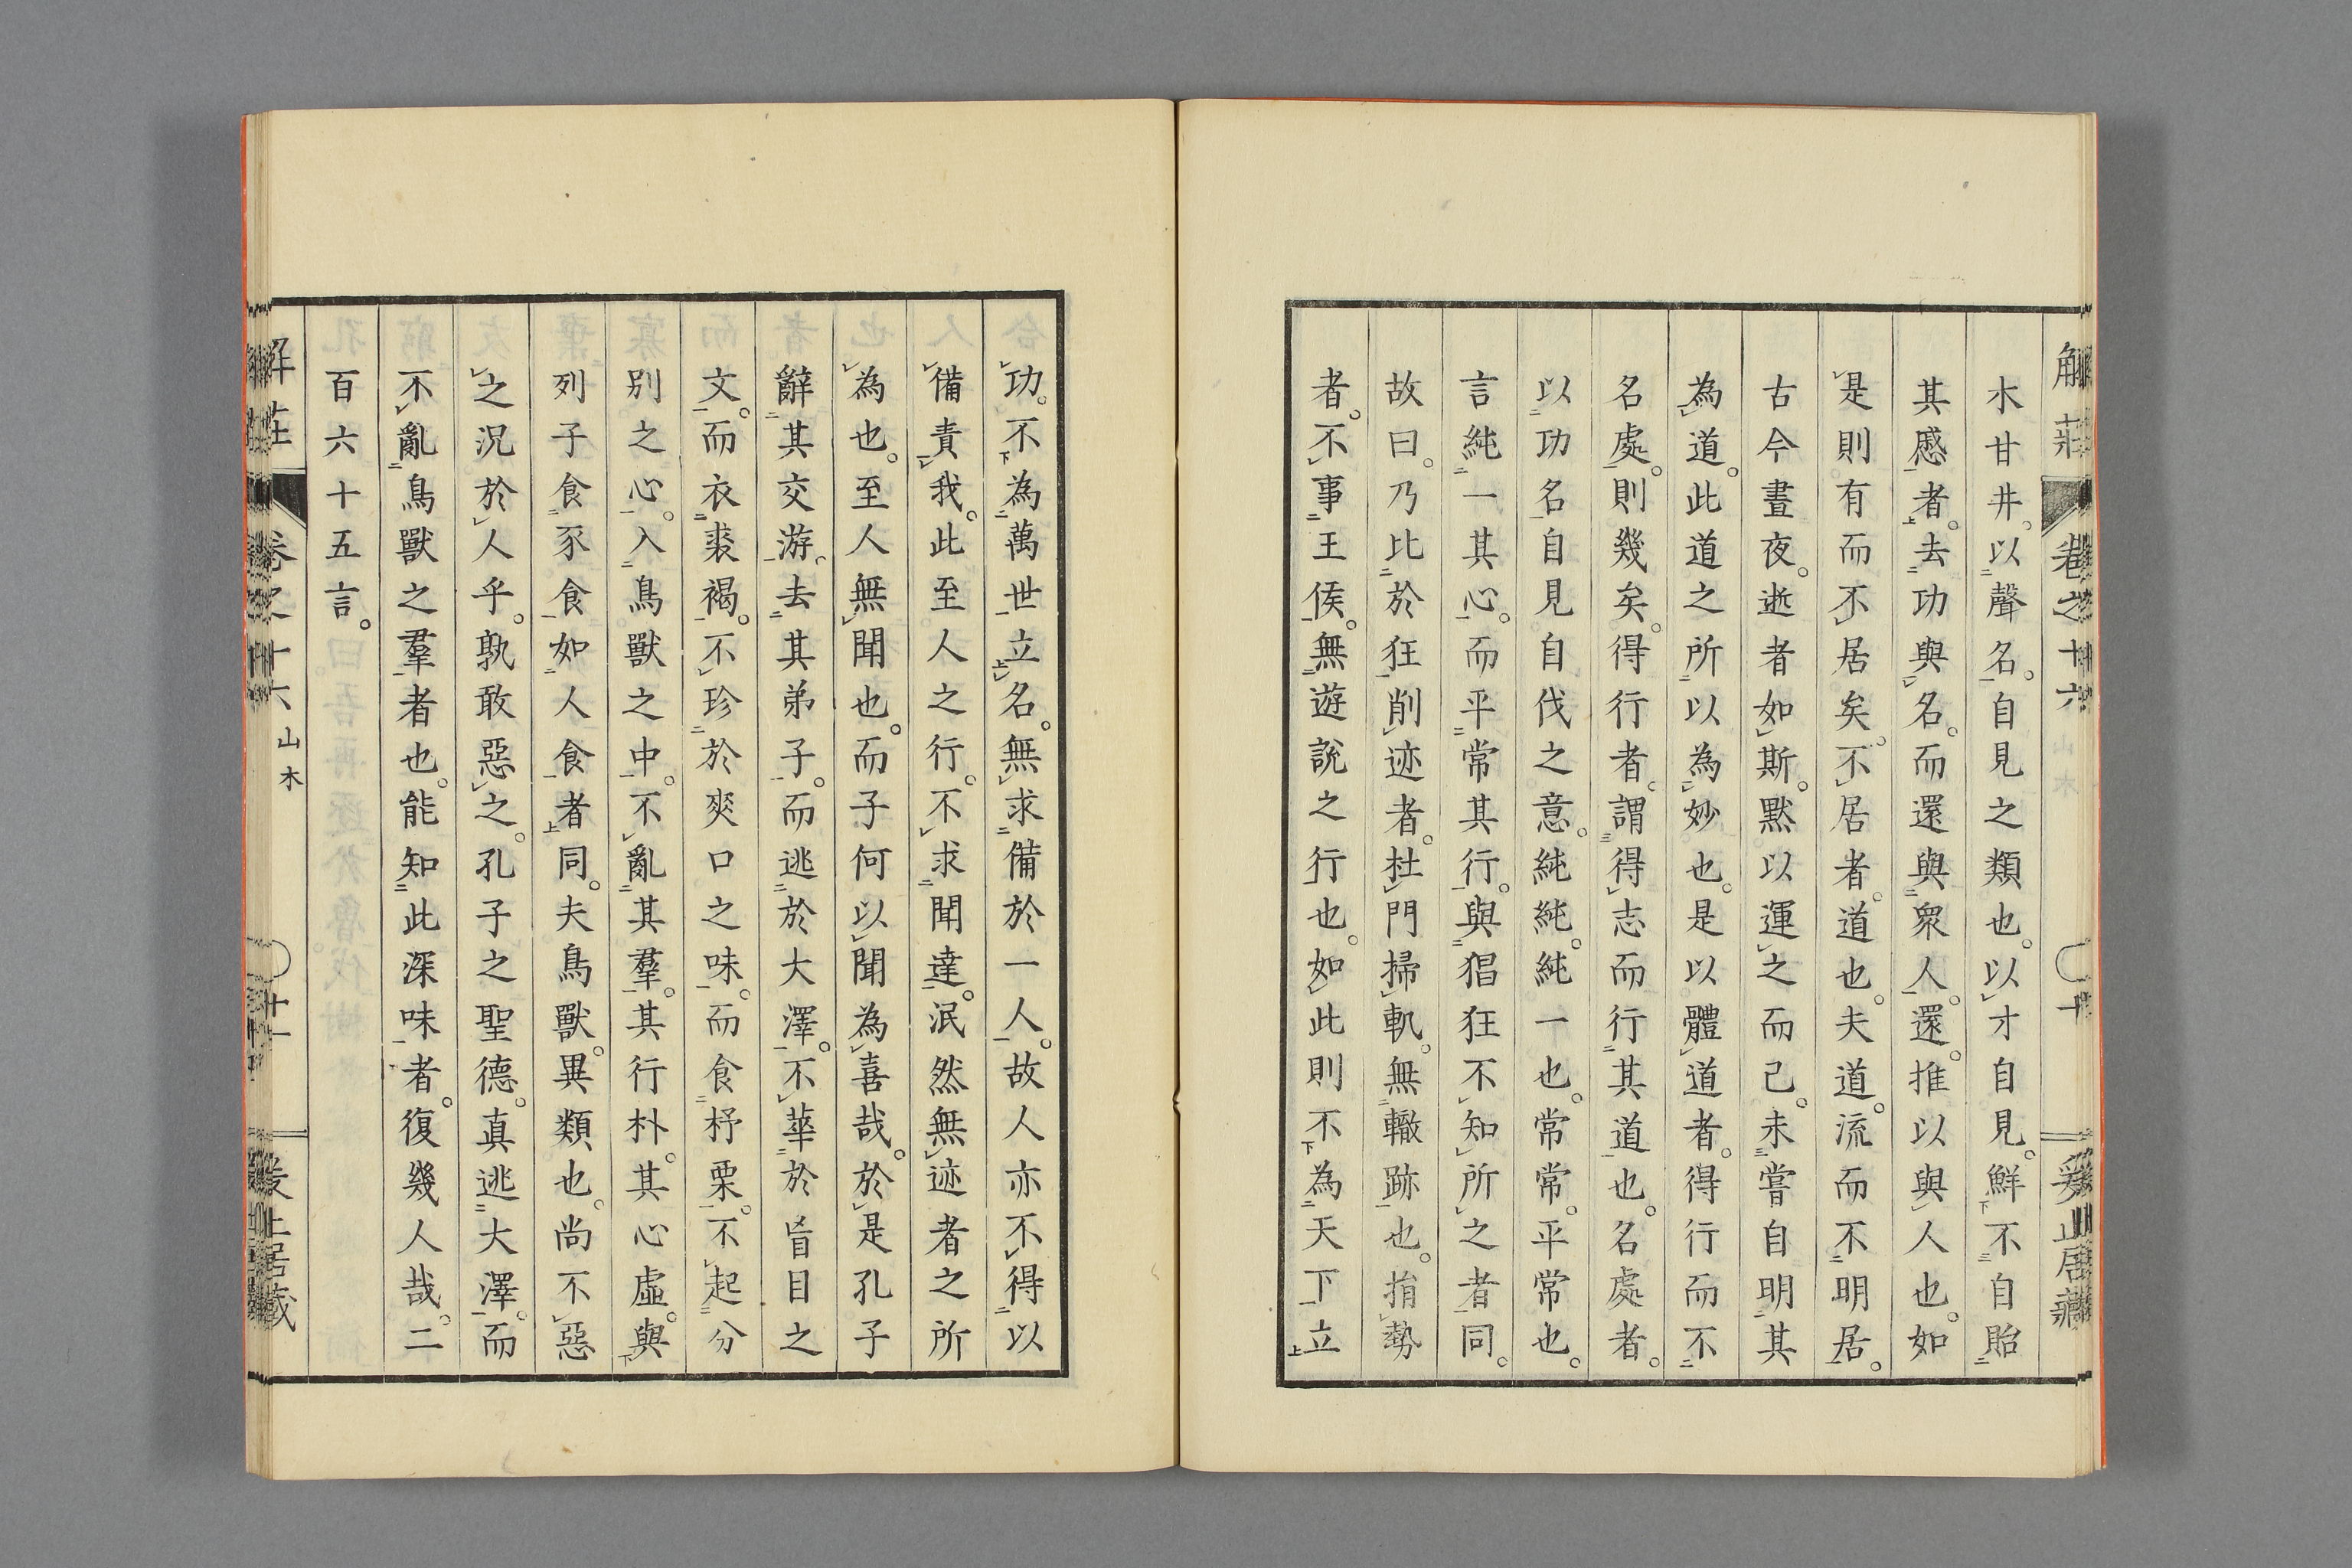 木甘井。以聲名。自見之類也。以才自見。鮮不自貽
其慼者。去功與名。而還與衆人。還。推以與人也。如
是則有而不居矣。不居者。道也。夫道。流而不明居。
古今晝夜。逝者如斯。默以運之而已。未嘗自明其
為道。此道之所以為妙也。是以體道者。得行而不
名處。則幾矣。得行者。謂得志而行其道也。名處者。
以功名自見自伐之意。純純。純一也。常常。平常也。
言純一其心。而平常其行。與猖狂不知所之者同。
故曰。乃比於狂削迹者。杜門掃軌。無轍跡也。捐勢
者。不事王侯。無遊說之行也。如此則不為天下立
解莊 卷之十六 山木 十
功。不為萬世立名。無求備於一人。故人亦不得以
備責我。此至人之行。不求聞達。泯然無迹者之所
為也。至人無聞也。而子何以聞為喜哉。於是孔子
辭其交游。去其弟子。而逃於大澤。不華於旨目之
文。而衣裘褐。不珍於爽口之味。而食杼栗。不起分
別之心。入鳥獸之中。不亂其羣。其行朴。其心虛。與
列子食豕食如人食者同。夫鳥獸。異類也。尚不惡
之況於人乎。孰敢惡之。孔子之聖德。真逃大澤。而
不亂鳥獸之羣者也。能知此深味者。復幾人哉。二
百六十五言。
解莊 卷之十六 山木 十一